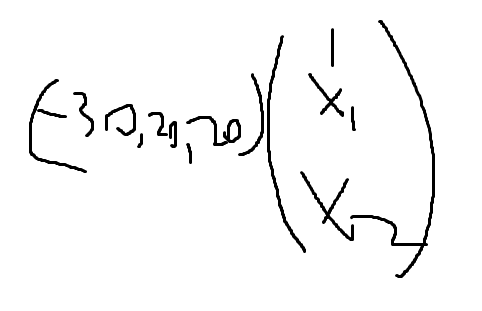 (-30, 20, 20) (1
x₁
x₂)